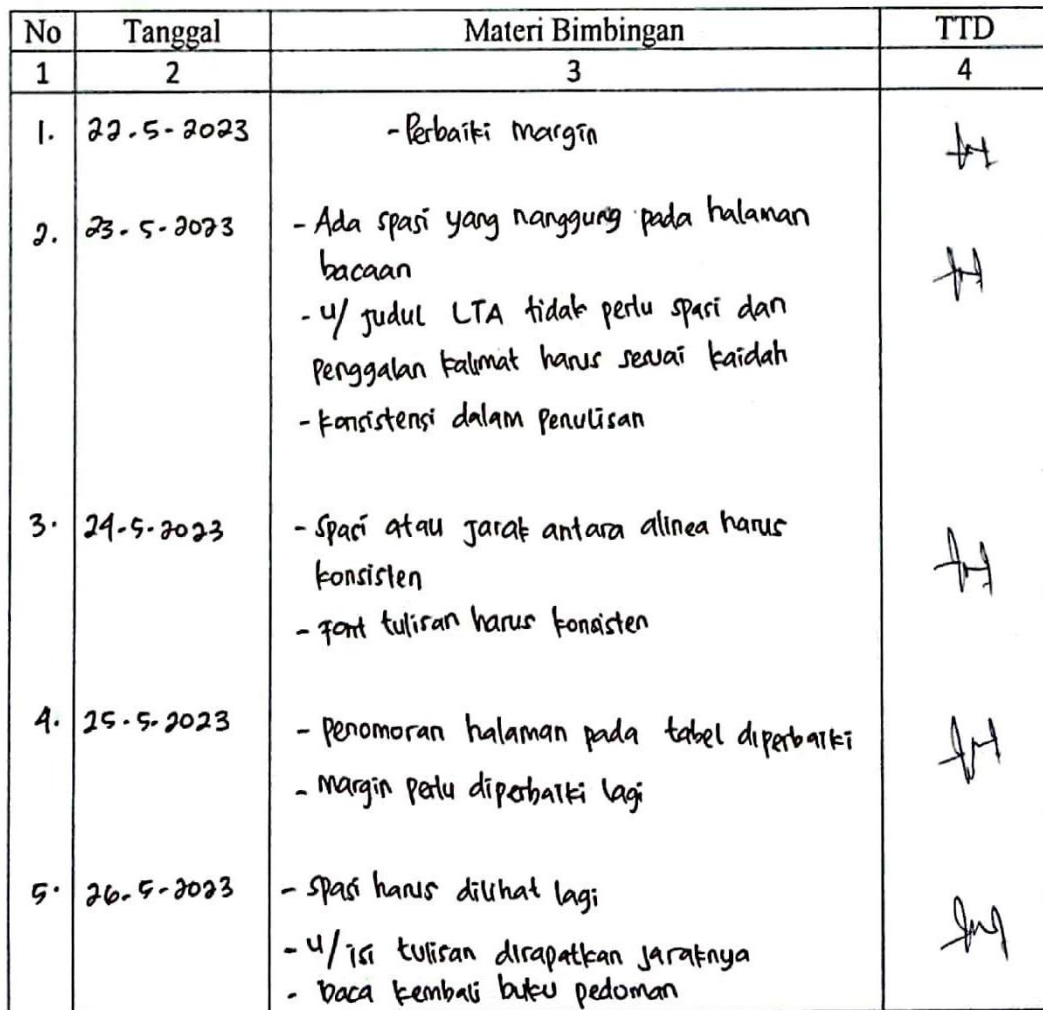 No Tanggal Materi Bimbingan TTD
1 2 3 4
1. 22-5-2023 - Perbaiki margin
2. 23-5-2023 - Ada spasi yang nanggung pada halaman
bacaan
- u/ judul LTA tidak perlu spasi dan
penggalan kalimat harus sesuai kaidah
- konsistensi dalam penulisan
3. 24-5-2023 - Spasi atau jarak antara alinea harus
konsisten
- Font tulisan harus konsisten
4. 25-5-2023 - penomoran halaman pada tabel diperbaiki
- margin perlu diperbaiki lagi
5. 26-5-2023 - spasi harus dilihat lagi
- u/ isi tulisan dirapatkan jaraknya
- baca kembali buku pedoman